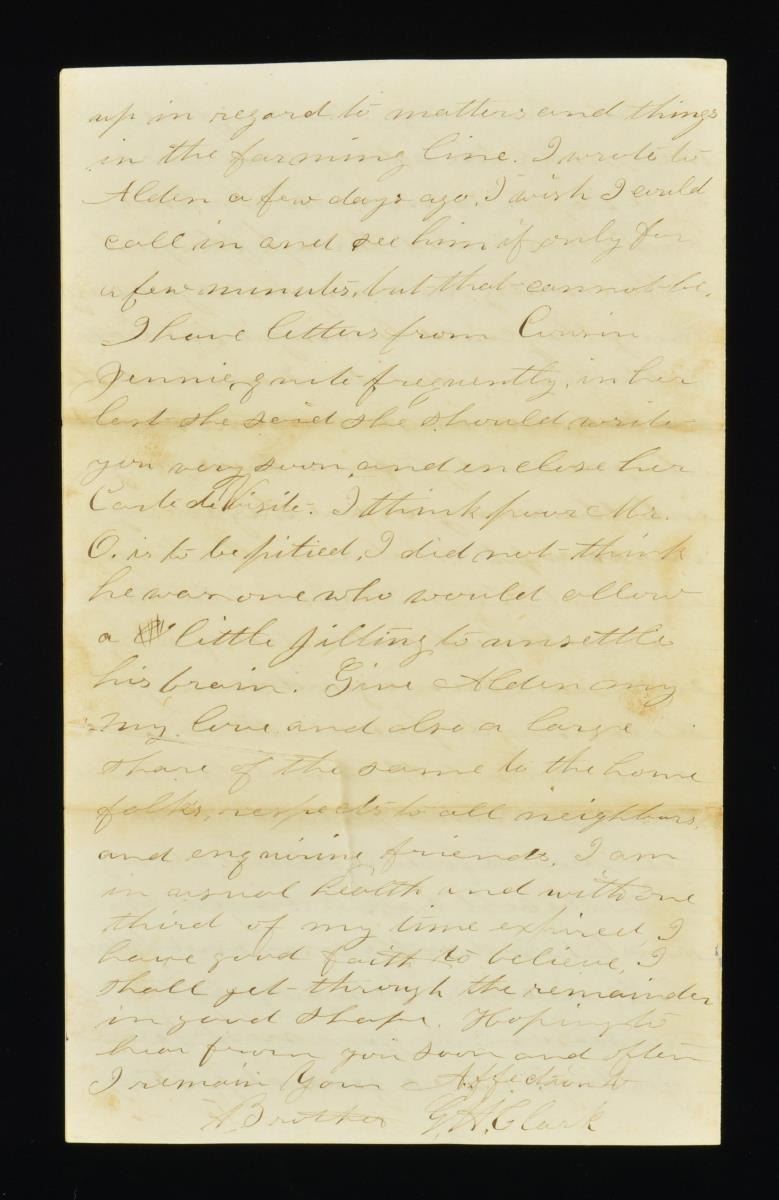 up in regard to matters and things
in the farming line. I wrote to
Alden a few days ago, I wish I could
call in and see him if only for
a few minutes, but that cannot be.
I have letters from Cousin
Jennie, quite frequently, in her
last she said she should write
you very soon, and enclose her
Carte de Visite. I think poor Mr.
O. is to be pitied, I did not think
he was one who would allow
a little jilting to unsettle
his brain. Give Alden my
my love and also a large
share of the same to the home
folks, respects to all neighbors,
and enquiring friends. I am
in usual health and with one
third of my time expired, I
have good faith to believe, I
shall get through the remainder
in good shape. Hoping to
hear from you soon and often
I remain Your Affectionate
Brother G. H. Clark